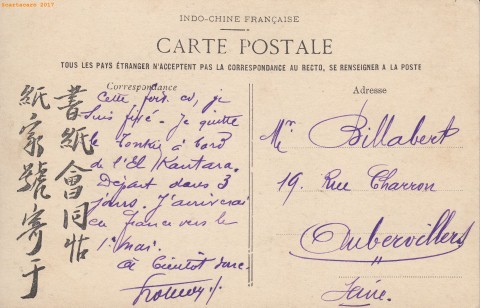 Scartacara 2017
INDO-CHINE FRANÇAISE
CARTE POSTALE
TOUS LES PAYS ÉTRANGER N'ACCEPTENT PAS LA CORRESPONDANCE AU RECTO, SE RENSEIGNER A LA POSTE
Correspondance
Adresse
Cette fois ci, je
suis fixé. Je quitte
le Tonkin à bord
de l'El Kantara.
Départ dans 3
jours. J'arriverai
en France vers le
1er mai.
A bientôt donc.
書紙會同帖
紙家號寄于
Mr Billabert
19, Rue Charron
Aubervilliers
Seine.